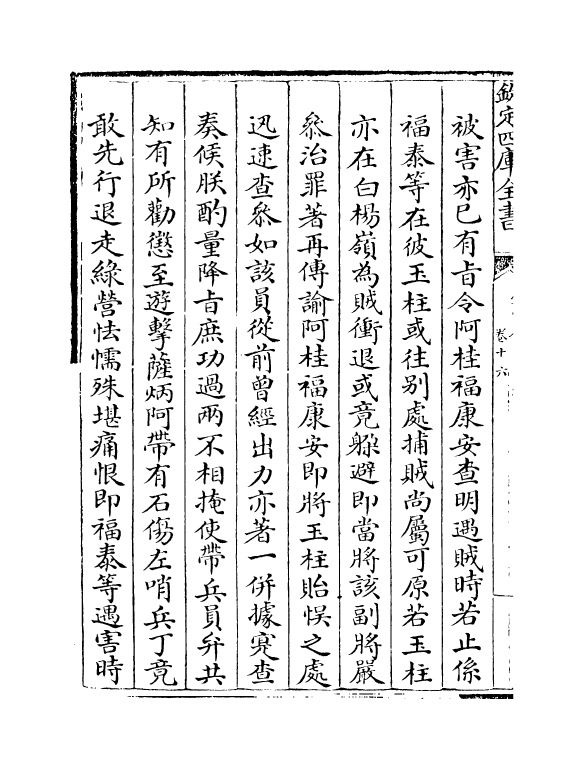 欽定四庫全書
卷十六
被害亦已有㫖令阿桂福康安查明遇賊時若止係
福泰等在彼玉柱或往别處捕賊尚屬可原若玉柱
亦在白楊嶺為賊衝退或竟躱避即當將該副將嚴
叅治罪著再傳諭阿桂福康安即將玉柱貽悮之處
迅速查叅如該員從前曾經出力亦著一併據寔查
奏候朕酌量降㫖庶功過兩不相掩使帶兵員弁共
知有所勸懲至遊擊薩炳阿帶有石傷左哨兵丁竟
敢先行退走綠營怯懦殊堪痛恨即福泰等遇害時